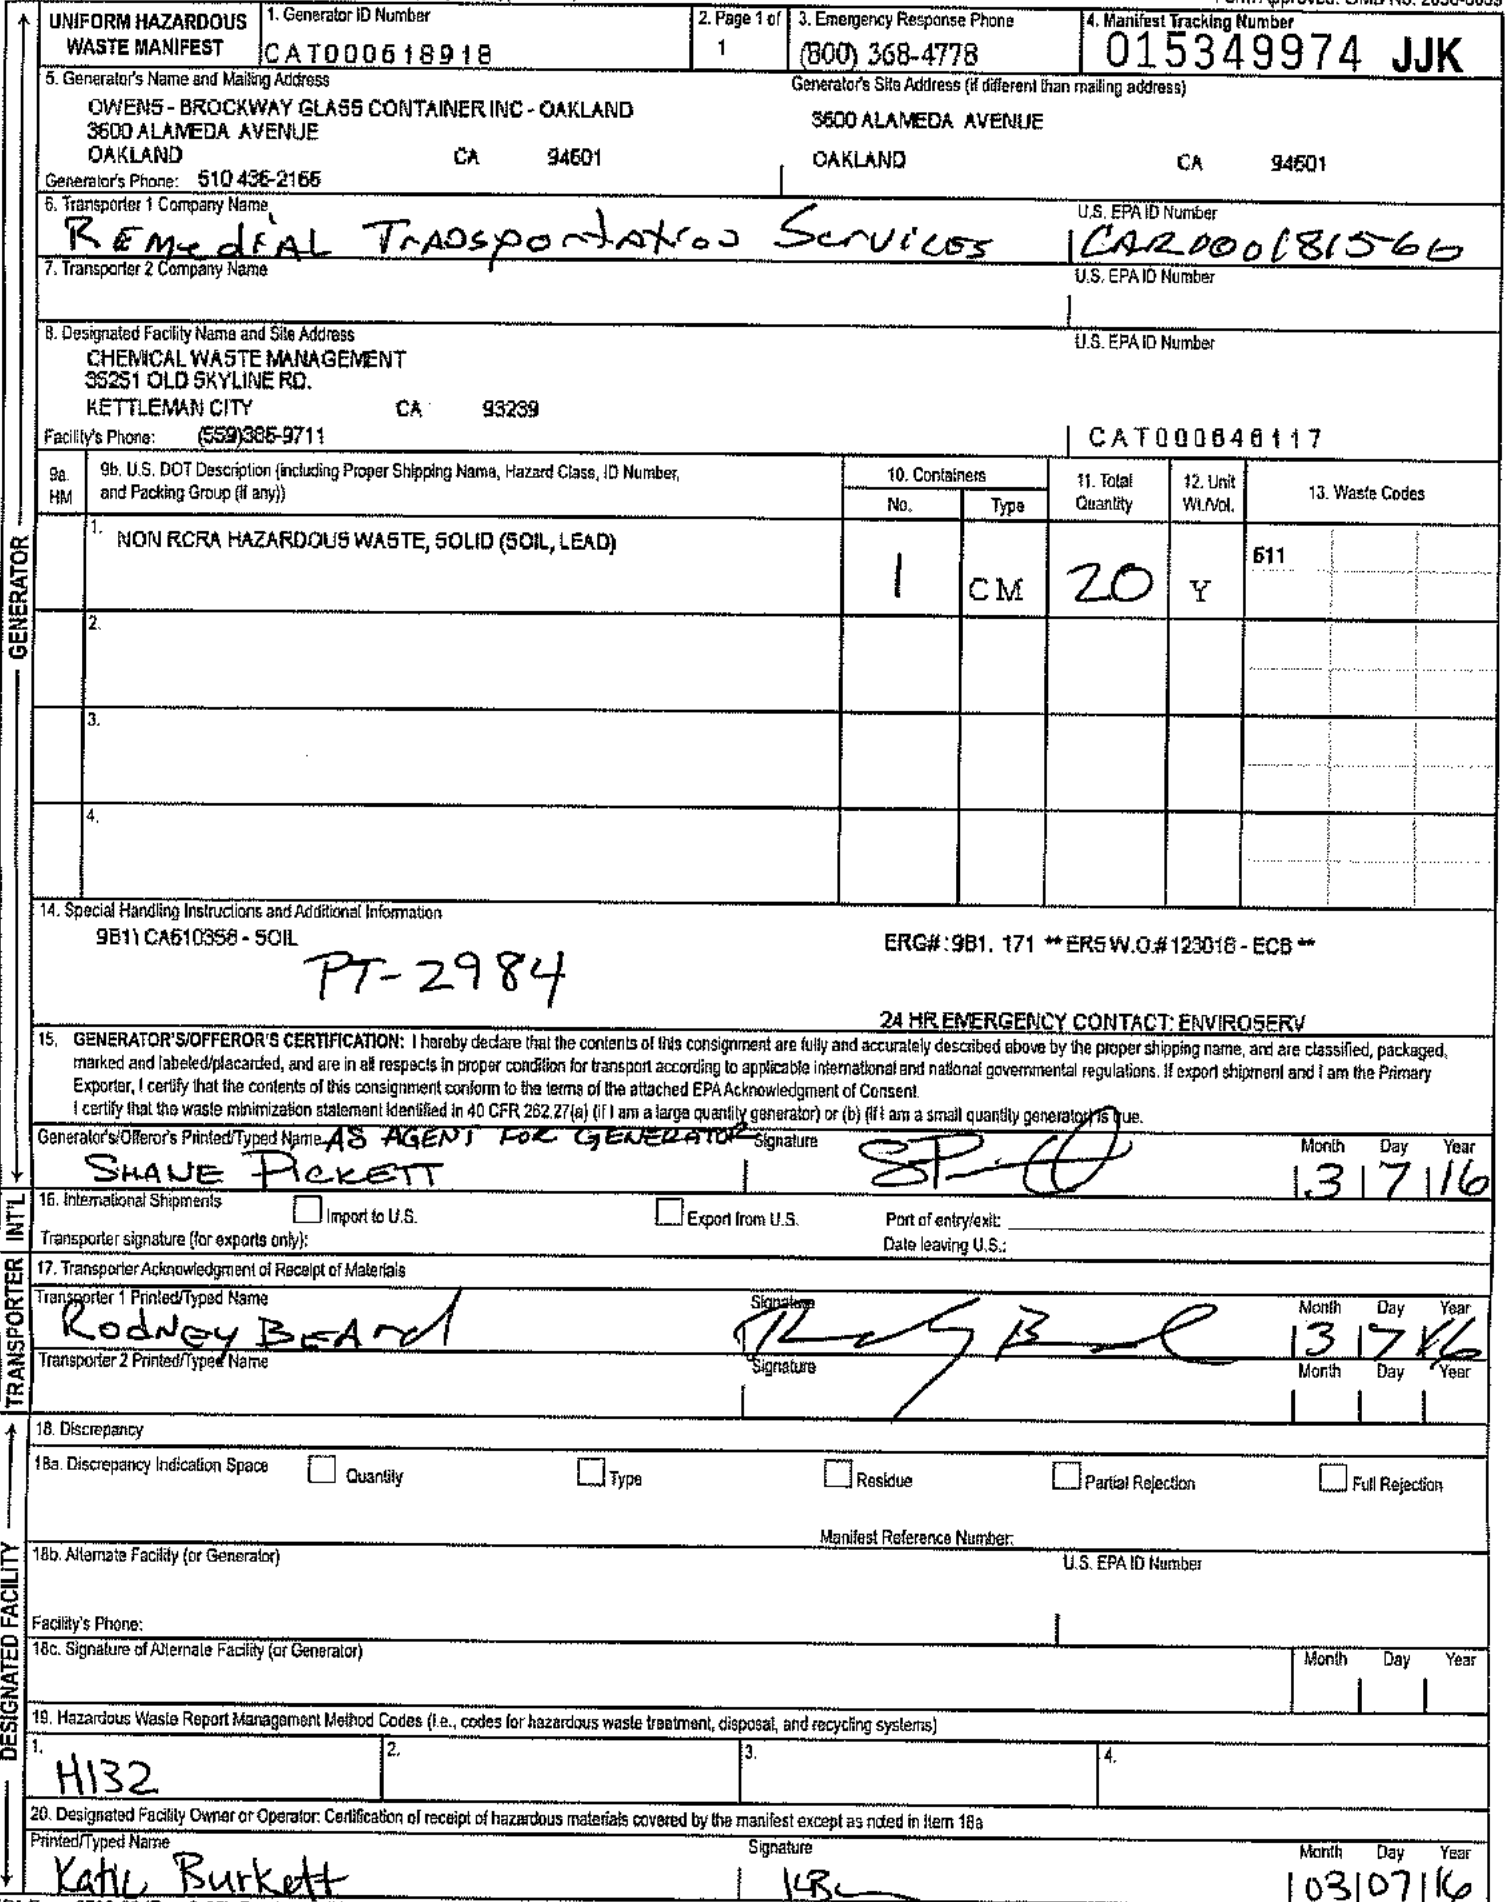 UNIFORM HAZARDOUS WASTE MANIFEST
1. Generator ID Number
CAT000618918
2. Page 1 of
1
3. Emergency Response Phone
(800) 368-4778
4. Manifest Tracking Number
015349974 JJK
5. Generator's Name and Mailing Address
Generator's Site Address (if different than mailing address)
OWENS - BROCKWAY GLASS CONTAINER INC - OAKLAND
3600 ALAMEDA AVENUE
3600 ALAMEDA AVENUE
OAKLAND CA 94601
OAKLAND CA 94601
Generator's Phone: 510 436-2166
6. Transporter 1 Company Name
U.S. EPA ID Number
Remedial Transportation Services
CAR000181566
7. Transporter 2 Company Name
U.S. EPA ID Number
8. Designated Facility Name and Site Address
U.S. EPA ID Number
CHEMICAL WASTE MANAGEMENT
35251 OLD SKYLINE RD.
KETTLEMAN CITY CA 93239
Facility's Phone: (559)386-9711
CAT000646117
9a. HM
9b. U.S. DOT Description (including Proper Shipping Name, Hazard Class, ID Number, and Packing Group (if any))
10. Containers
No.
Type
11. Total Quantity
12. Unit Wt./Vol.
13. Waste Codes
1. NON RCRA HAZARDOUS WASTE, SOLID (SOIL, LEAD)
1 CM 20 Y
611
2.
3.
4.
14. Special Handling Instructions and Additional Information
9B1) CA610358 - SOIL
ERG# :9B1. 171 ** ERS W.O.# 123018 - ECB **
PT-2984
24 HR EMERGENCY CONTACT: ENVIROSERV
15. GENERATOR'S/OFFEROR'S CERTIFICATION: I hereby declare that the contents of this consignment are fully and accurately described above by the proper shipping name, and are classified, packaged,
marked and labeled/placarded, and are in all respects in proper condition for transport according to applicable international and national governmental regulations. If export shipment and I am the Primary
Exporter, I certify that the contents of this consignment conform to the terms of the attached EPA Acknowledgment of Consent.
I certify that the waste minimization statement identified in 40 CFR 262.27(a) (if I am a large quantity generator) or (b) (if I am a small quantity generator) is true.
Generator's/Offeror's Printed/Typed Name AS AGENT FOR GENERATOR
Signature
Month Day Year
SHANE PICKETT
3 7 16
16. International Shipments
Import to U.S.
Export from U.S.
Port of entry/exit:
Transporter signature (for exports only):
Date leaving U.S.:
17. Transporter Acknowledgment of Receipt of Materials
Transporter 1 Printed/Typed Name
Signature
Month Day Year
Rodney Beard
3 7 16
Transporter 2 Printed/Typed Name
Signature
Month Day Year
18. Discrepancy
18a. Discrepancy Indication Space
Quantity
Type
Residue
Partial Rejection
Full Rejection
Manifest Reference Number:
18b. Alternate Facility (or Generator)
U.S. EPA ID Number
Facility's Phone:
18c. Signature of Alternate Facility (or Generator)
Month Day Year
19. Hazardous Waste Report Management Method Codes (i.e., codes for hazardous waste treatment, disposal, and recycling systems)
1. H132
2.
3.
4.
20. Designated Facility Owner or Operator: Certification of receipt of hazardous materials covered by the manifest except as noted in Item 18a
Printed/Typed Name
Signature
Month Day Year
Katie Burkett
KB
03 07 16
GENERATOR
INT'L
TRANSPORTER
DESIGNATED FACILITY